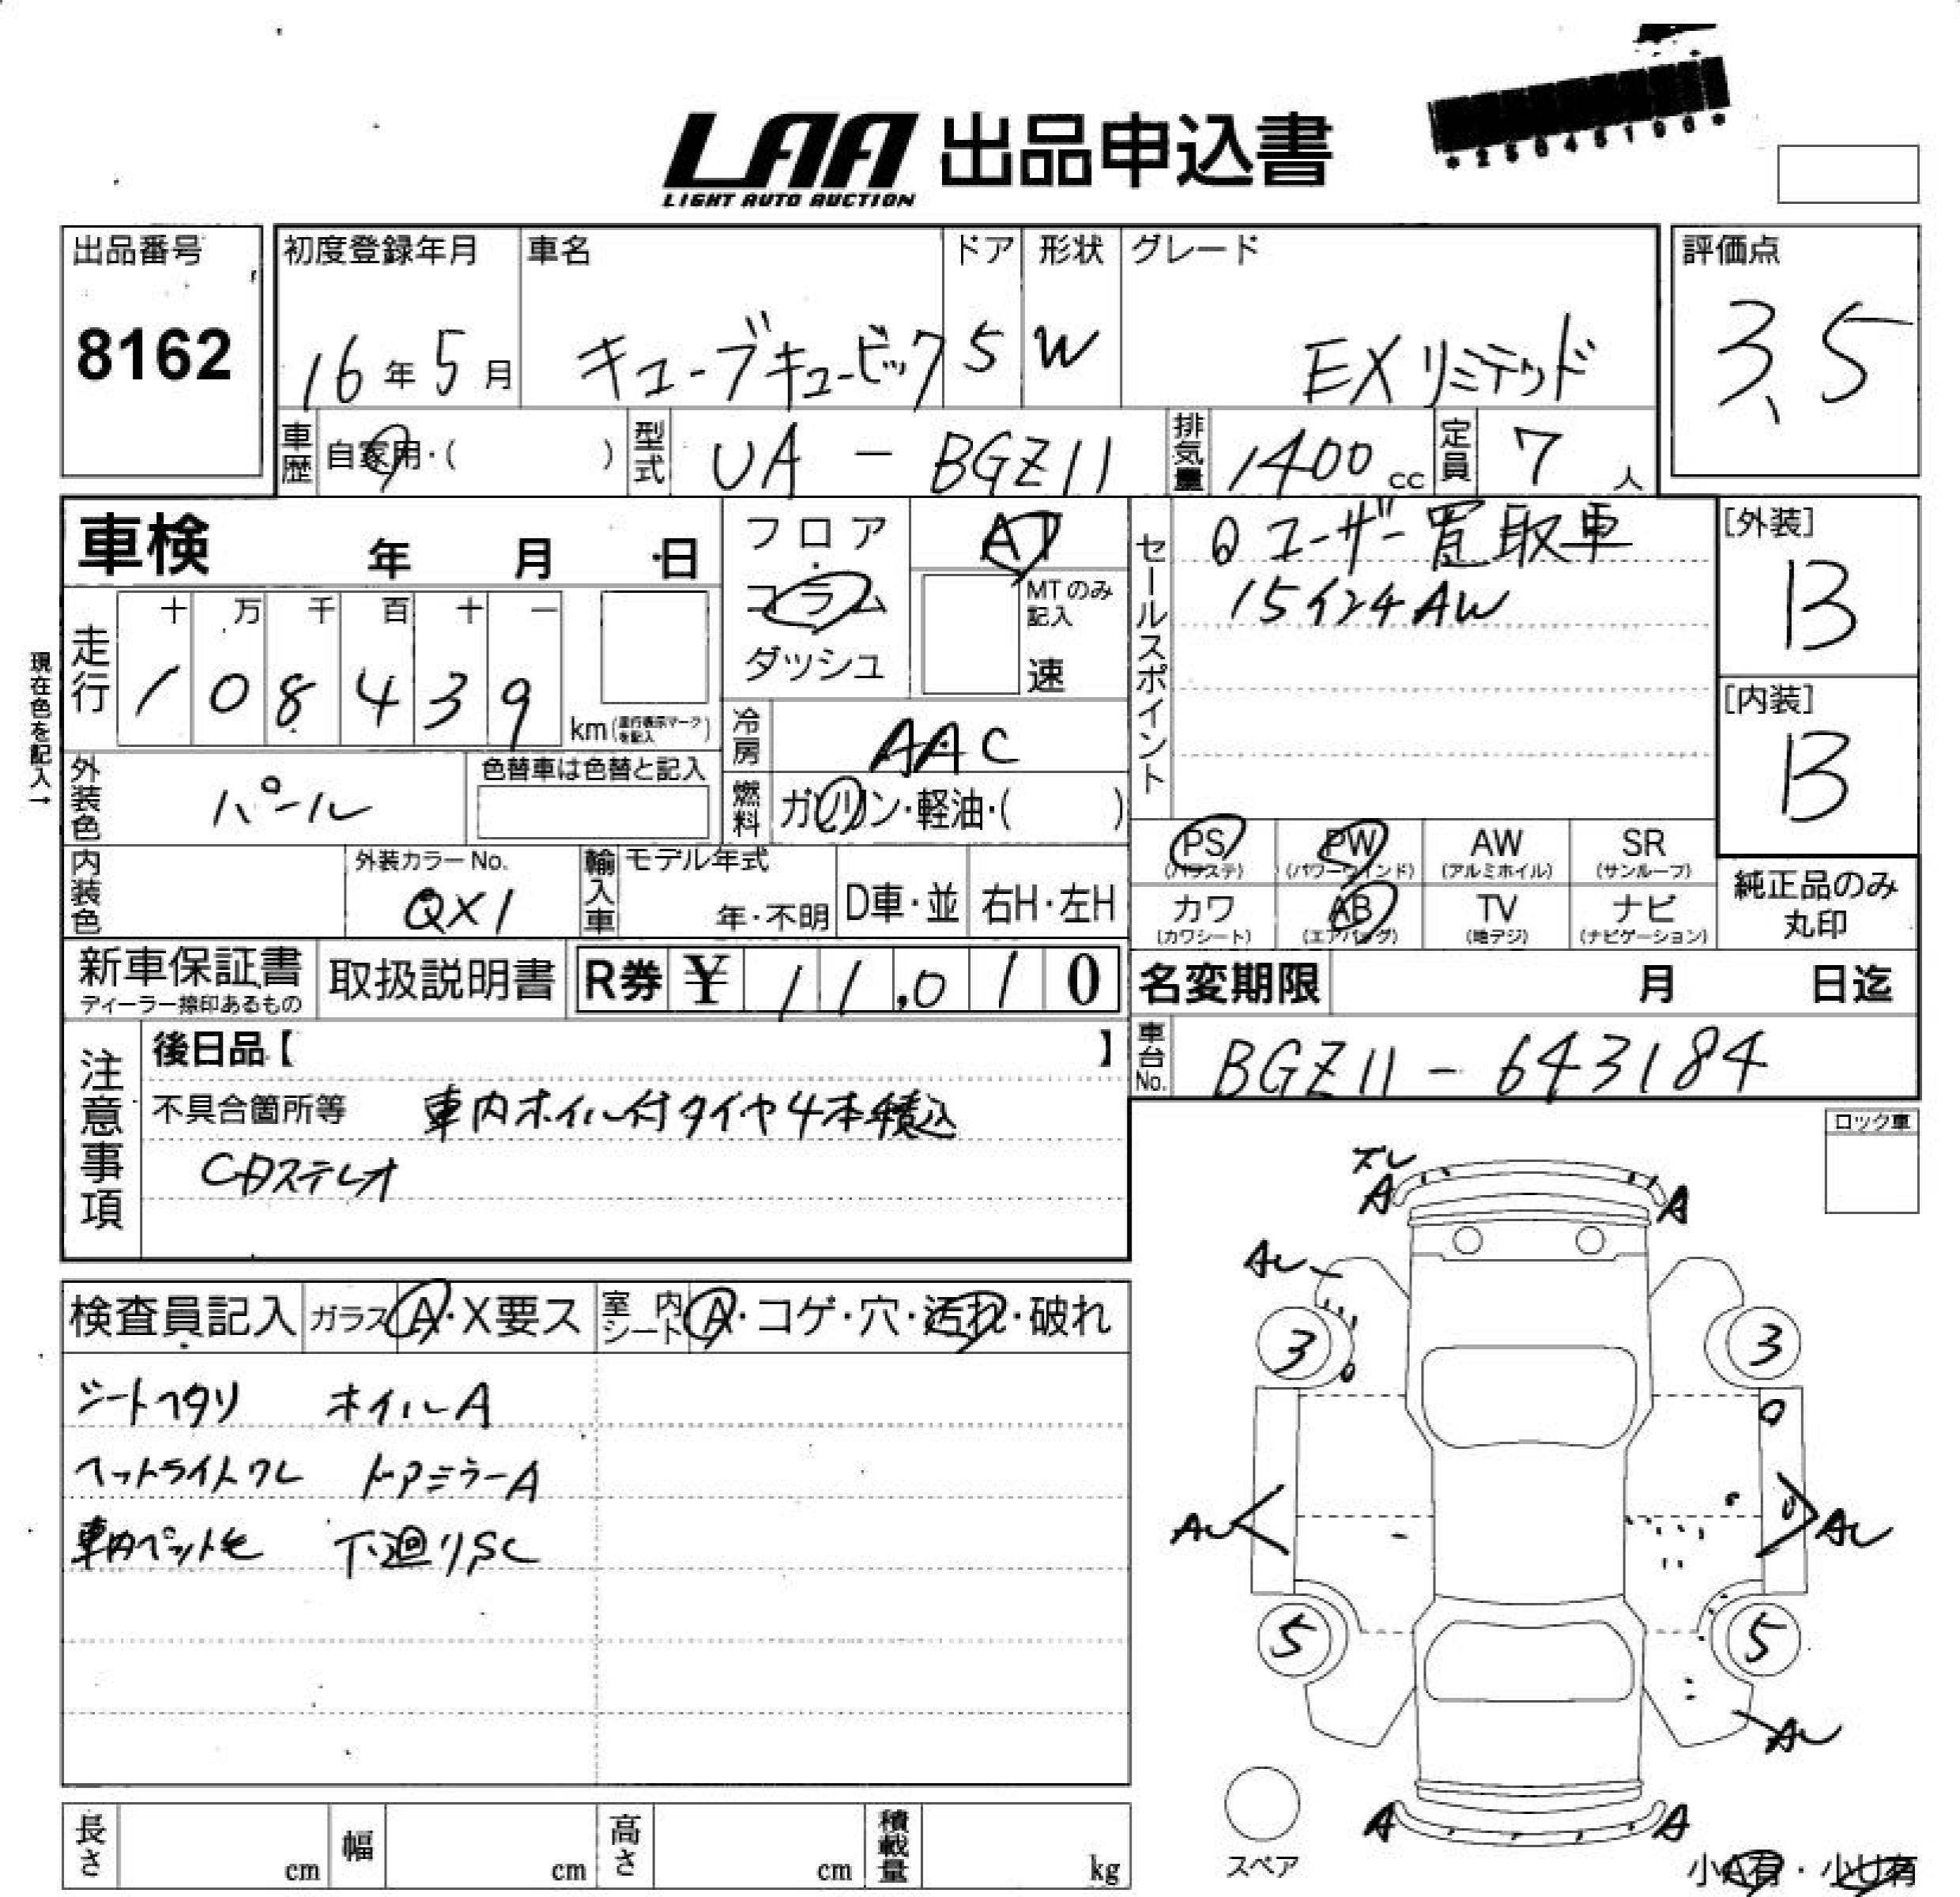 *25045190*
LAA 出品申込書
LIGHT AUTO AUCTION
出品番号 8162
初度登録年月 16年5月
車名 キューブキュービック
ドア 5
形状 W
グレード EXリミテッド
評価点 3.5
車歴 自家用・( )
型式 UA - BGZ11
排気量 1400cc
定員 7人
車検 年 月 日
フロア・コラム ダッシュ
AT
MTのみ記入 速
セールスポイント
Qユーザー買取車
15インチAW
[外装] B
[内装] B
現在色を記入→
走行 十 万 千 百 十 一
1 0 8 4 3 9 km(走行表示マークを記入)
冷房 AAC
燃料 ガソリン・軽油・( )
外装色 パール
色替車は色替と記入
内装色
外装カラーNo. QX1
輸入車 モデル年式 年・不明 D車・並 右H・左H
PS (パワステ) PW (パワーウインド) AW (アルミホイル) SR (サンルーフ)
カワ (カワシート) AB (エアバッグ) TV (地デジ) ナビ (ナビゲーション)
純正品のみ丸印
新車保証書 ディーラー捺印あるもの
取扱説明書
R券 ¥ 11,010
名変期限 月 日迄
車台No. BGZ11-643184
注意事項
後日品【 】
不具合箇所等 車内ホイル付タイヤ4本積込
CDステレオ
ロック車
検査員記入 ガラス A・X要ス 室内シート A・コゲ・穴・汚れ・破れ
シートヘタリ ホイルA
ヘットライトクレ ドアミラーA
車内ペット毛 下廻りSC
ズレ
A A
AU
3 3
AU AU
5 5
AU
A A
スペア
小A有・小U有
長さ cm 幅 cm 高さ cm 積載量 kg